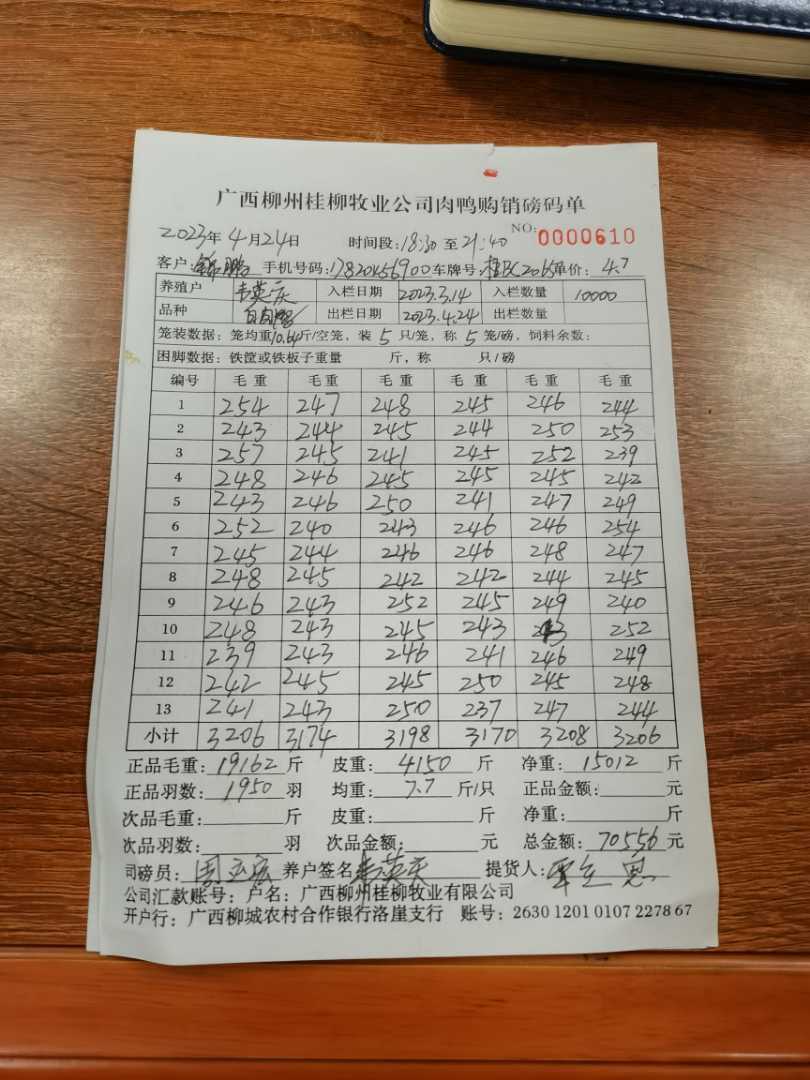 广西柳州桂柳牧业公司肉鸭购销磅码单
NO: 0000610
2023年4月24日 时间段:18:30至21:40
客户: 锦鹏 手机号码:17820456900车牌号: 2065单价: 4.7
养殖户 韦英庆 入栏日期 2023.3.14 入栏数量 10000
品种 出栏日期 2023.4.24 出栏数量
笼装数据: 笼均重10.64斤/空笼, 装 5 只/笼, 称 5 笼/磅, 饲料余数:
困脚数据: 铁筐或铁板子重量 斤, 称 只/磅
编号 毛重 毛重 毛重 毛重 毛重 毛重
1 254 247 248 245 246 244
2 243 244 245 244 250 253
3 257 245 241 245 252 239
4 248 246 245 245 245 242
5 243 246 250 241 247 249
6 252 240 243 246 246 254
7 245 244 246 246 248 247
8 248 245 242 242 244 245
9 246 243 252 245 249 240
10 248 243 245 243 243 252
11 239 243 246 241 246 249
12 242 245 245 250 245 248
13 241 243 250 237 247 244
小计 3206 3174 3198 3170 3208 3206
正品毛重: 19162 斤 皮重: 4150 斤 净重: 15012 斤
正品羽数: 1950 羽 均重: 7.7 斤/只 正品金额: 元
次品毛重: 斤 皮重: 斤 净重: 斤
次品羽数: 羽 次品金额: 元 总金额: 70556 元
司磅员: 养户签名 韦英庆 提货人:
公司汇款账号: 户名: 广西柳州桂柳牧业有限公司
开户行: 广西柳城农村合作银行洛崖支行 账号: 2630 1201 0107 2278 67